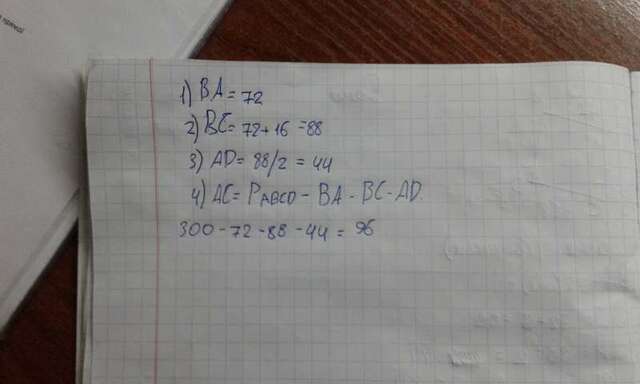 1) BA = 72
2) BC = 72 + 16 = 88
3) AD = 88/2 = 44
4) AC = PABCD - BA - BC - AD.
300 - 72 - 88 - 44 = 96